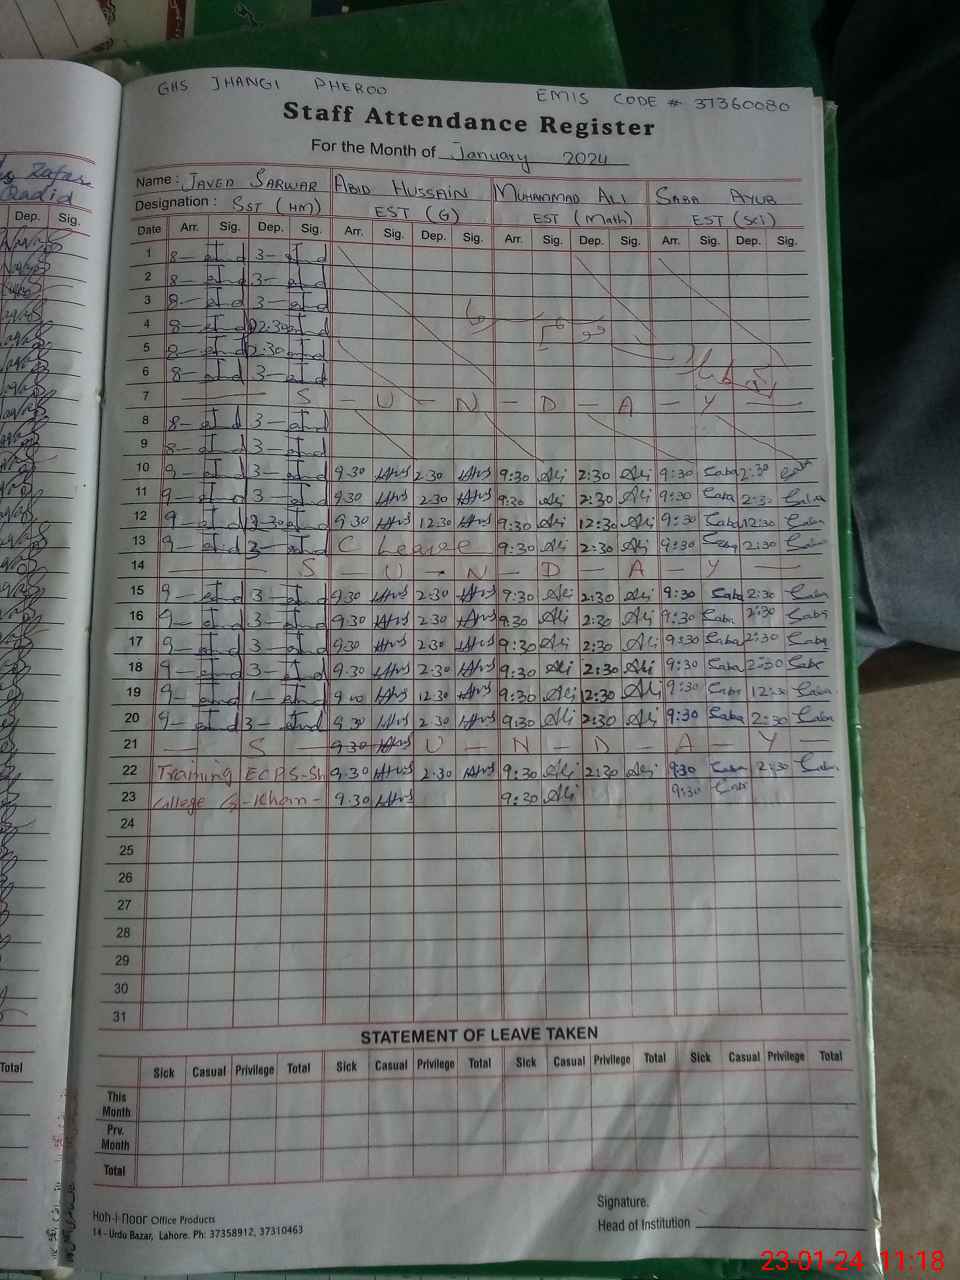 GHS JHANGI PHEROO
EMIS CODE # 37360080
Staff Attendance Register
For the Month of January 2024
Name : JAVED SARWAR ABID HUSSAIN MUHAMMAD ALI SABA AYUB
Designation : SST (HM) EST (G) EST (Math) EST (Sci)
Date Arr. Sig. Dep. Sig. Arr. Sig. Dep. Sig. Arr. Sig. Dep. Sig. Arr. Sig. Dep. Sig.
1 8- 3-
2 8- 3-
3 8- 3-
4 8- 12:30
5 8- 2:30
6 8- 3-
7 S - U - N - D - A - Y
8 8- 3-
9 8- 3-
10 9- 3- 9:30 2:30 9:30 Ali 2:30 Ali 9:30 Saba 2:30 Saba
11 9- 3- 9:30 2:30 9:30 Ali 2:30 Ali 9:30 Saba 2:30 Saba
12 9- 12:30 9:30 12:30 9:30 Ali 12:30 Ali 9:30 Saba 12:30 Saba
13 9- 3- C Leave 9:30 Ali 2:30 Ali 9:30 Saba 2:30 Saba
14 S - U - N - D - A - Y
15 9- 3- 9:30 2:30 9:30 Ali 2:30 Ali 9:30 Saba 2:30 Saba
16 9- 3- 9:30 2:30 9:30 Ali 2:30 Ali 9:30 Saba 2:30 Saba
17 9- 3- 9:30 2:30 9:30 Ali 2:30 Ali 9:30 Saba 2:30 Saba
18 9- 3- 9:30 2:30 9:30 Ali 2:30 Ali 9:30 Saba 2:30 Saba
19 9- 1- 12:30 9:30 Ali 12:30 Ali 9:30 Saba 12:30 Saba
20 9- 3- 9:30 2:30 9:30 Ali 2:30 Ali 9:30 Saba 2:30 Saba
21 S 9:30 U - N - D - A - Y -
22 Training ECPS-Sh 9:30 2:30 9:30 Ali 2:30 Ali 9:30 Saba 2:30 Saba
23 College G-Khan- 9:30 9:30 Ali 9:30 Saba
24
25
26
27
28
29
30
31
STATEMENT OF LEAVE TAKEN
Sick Casual Privilege Total Sick Casual Privilege Total Sick Casual Privilege Total Sick Casual Privilege Total
This Month
Prv. Month
Total
Signature.
Head of Institution
Koh-i-noor Office Products
14-Urdu Bazar, Lahore. Ph: 37358912, 37310463
Dep. Sig.
Total
23-01-24 11:18